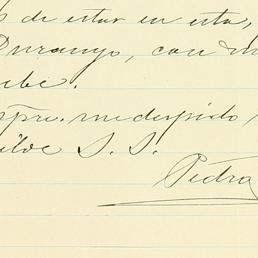 de estar en esta,
Durango, con
be.
spre. me despido
S. S.
Pedro